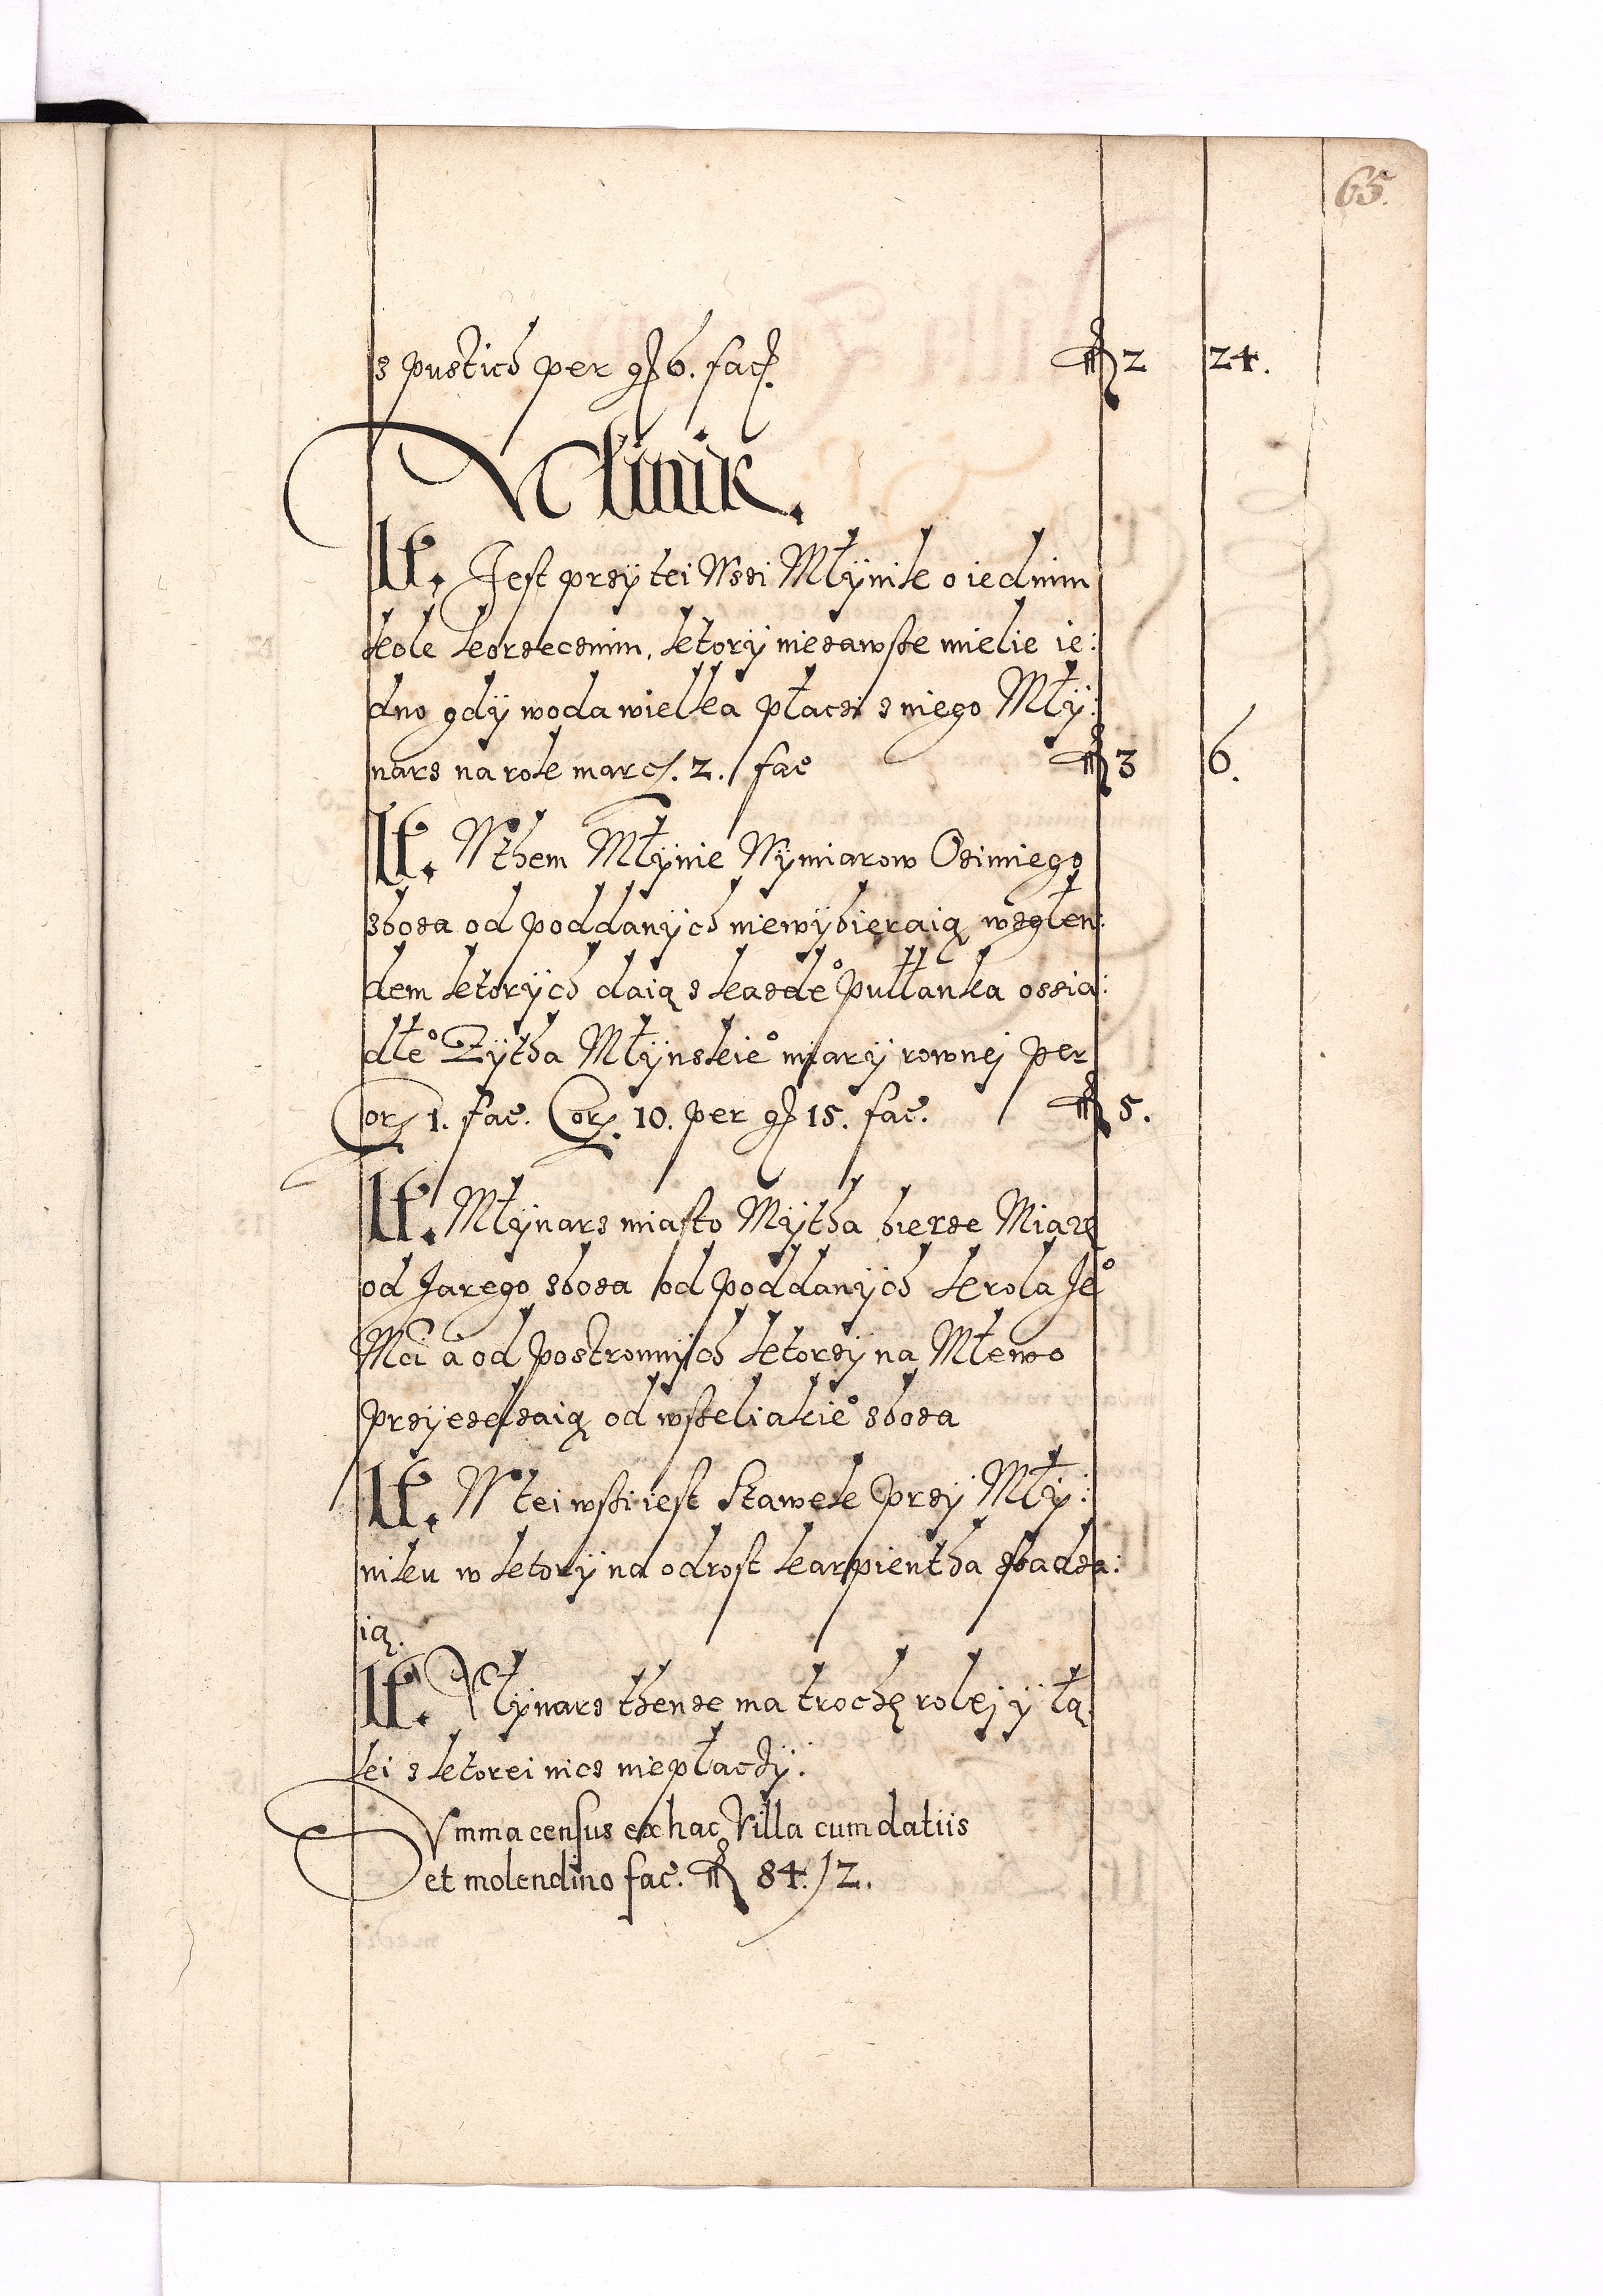 65.
z pustich per gr 6. fac. fl 2 24.
Młinik.
It. Jest przÿ tei Wsi Młÿnik o iednim
kole korzecznim, ktorÿ niezawsze mielie ie:
dno gdÿ woda wielka płaczi z niego Młÿ:
narz na rok marc. 2. fac fl 3 6.
It. Wthem Młÿnie Wÿmiarow Ozimiego
zboza od poddanÿch niewÿbieraią wzglen:
dem ktorÿch daią z kazde° Pułłanka ossia:
dłe° Zÿtha Młÿnskie° miarÿ rownej per
Cor. 1. fac. Cor. 10. per gr 15. fac. fl 5.
It. Młÿnarz miasto Mÿtha bierze Miarę
od Jarego zboza od poddanÿch krola Je°
Mci a od postronnÿch ktorzÿ na Młewo
przÿezdzaią od wszeliakie° zboza
It. W tei wsi iest Stawek przÿ Młÿ:
niku w ktorÿ na odrost karpientha sadza:
ią.
It. Młÿnarz thenze ma trochę rolej ÿ łą
ki z ktorei nicz niepłaczÿ.
Summa census ex hac Villa cum datiis
et molendino fac. fl 84./2.